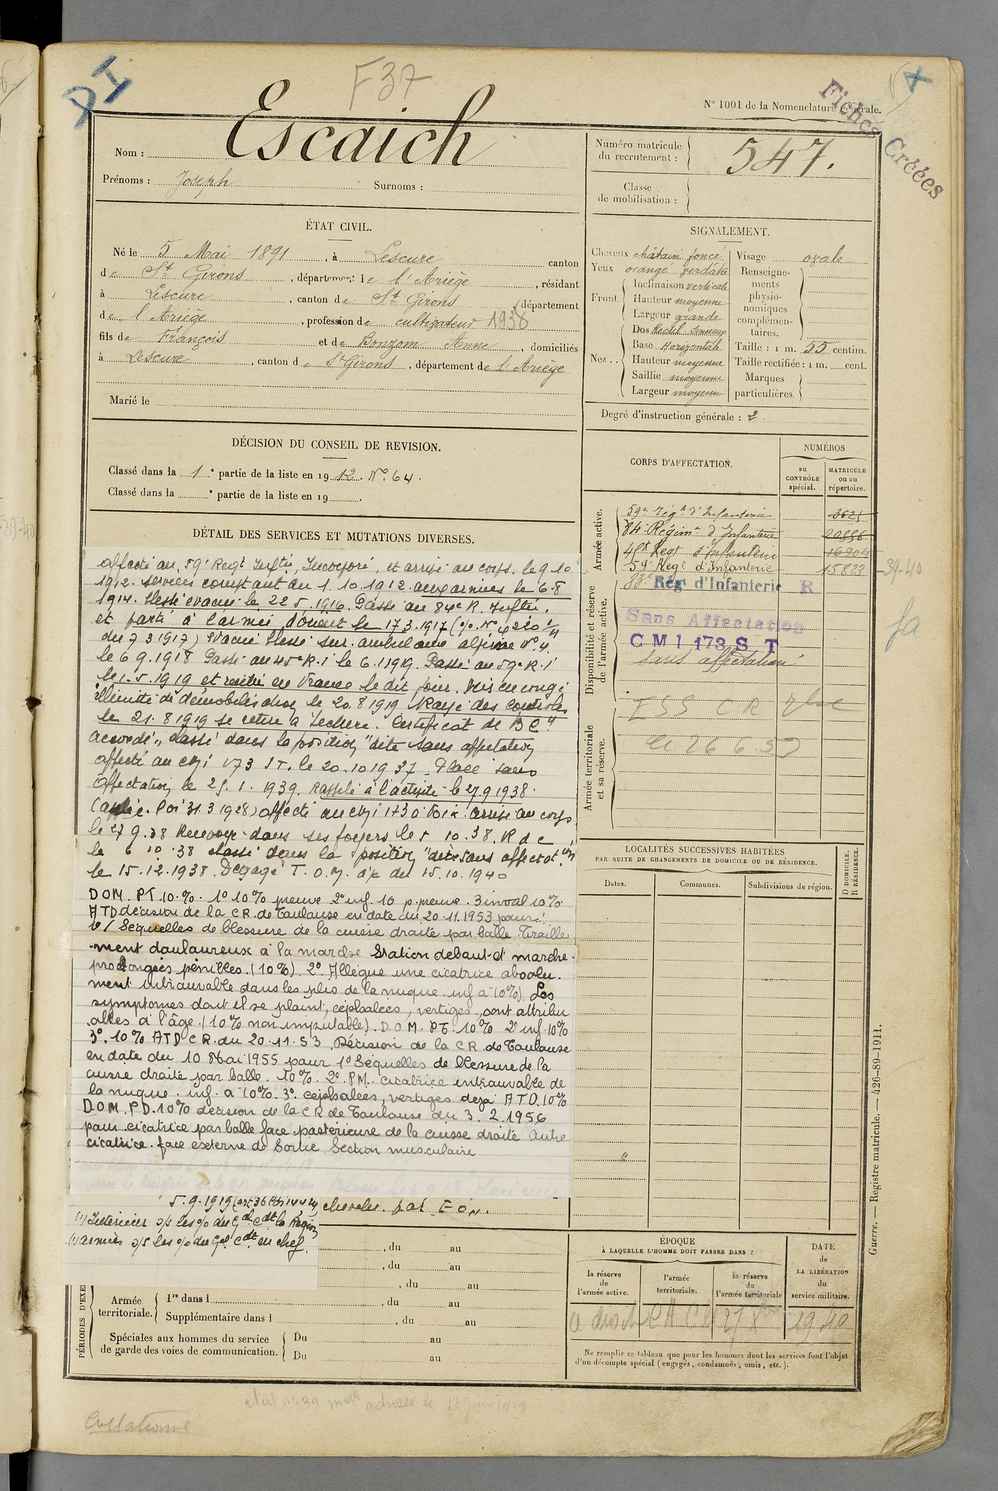 DI
F37
N° 1001 de la Nomenclature générale.
Fiches Créées
Nom : Escaich
Prénoms : Joseph Surnoms :
Numéro matricule du recrutement : 547.
Classe de mobilisation :
ÉTAT CIVIL.
Né le 5 Mai 1891, à Lescure canton
de St Girons, département de l'Ariège, résidant
à Lescure, canton de St Girons, département
de l'Ariège, profession de cultivateur 1936
fils de François et de Bonzom Anne, domiciliés
à Lescure, canton de St Girons, département de l'Ariège
Marié le
SIGNALEMENT.
Cheveux châtain foncé
Yeux orange verdâtre
Front. Inclinaison verticale
Hauteur moyenne
Largeur grande
Nez. Dos Rectil. Sinueux
Base Horizontale
Hauteur moyenne
Saillie moyenne
Largeur moyenne
Visage ovale
Renseignements physionomiques complémentaires.
Taille : 1 m. 55 centim.
Taille rectifiée : 1 m. cent.
Marques particulières.
Degré d'instruction générale : 2
DÉCISION DU CONSEIL DE REVISION.
Classé dans la 1e partie de la liste en 1912 N° 64.
Classé dans la e partie de la liste en 19
CORPS D'AFFECTATION.
NUMÉROS
au CONTRÔLE spécial.
MATRICULE ou au répertoire.
Armée active.
59e Régt d'Infanterie 3621
84e Régimt d'Infanterie
45e Régt d'Infanterie
59e Régt d'Infanterie 15833
39-40
Disponibilité et réserve de l'armée active.
83e Rég d'Infanterie R
Sans Affectation
CMI 173 S T
Sans affectation
fa
Armée territoriale et sa réserve.
26 6 53
DÉTAIL DES SERVICES ET MUTATIONS DIVERSES.
affecté au 59e Regt Inftie, Incorporé, et arrivé au corps le 9.10
1912. services comptant du 1.10.1912. aux armées le 6-8
1914. Blessé évacué le 22.5.1916. Passé au 84e R. Inftie.
et parti à l'armée d'orient le 17.3.1917
du 7 3 1917) Evacué blessé sur ambulance alpine N° 4
le 6 9.1918 Passé au 45e R.I le 6.1.1919. Passé au 59e R.I
le 1.5.1919 et rentré en France le dit jour. Mis en congé
illimité de démobilisation le 20.8.1919 Rayé des controles
le 21.8.1919 se retire à Lescure. Certificat de B.C.
accordé, Classé dans la position "dite sans affectation
affecté au CMI 173 S.T. le 20.10.1937. Placé sans
affectation le 25.1.1939. Rappelé à l'activité le 27.9.1938.
(applic. loi 31.3.1928) affecté au CMI 173 arrivé au corps
le 27 9.38 Renvoyé dans ses foyers le 5 10.38. R d c
le 6 10.38 classé dans la position "dite sans affectation
le 15.12.1938. Dégagé T.O.M. d/c du 15.10.1940
DOM. P.T. 10.%. 1° 10% preuve 2° inf. 10 p. preuve. 3 inval 10%.
ATD. décision de la CR. de Toulouse en date du 20.11.1953 pour:
1°/ Séquelles de blessure de la cuisse droite par balle. Tiraille
-ment douloureux à la marche. Station debout et marche.
prolongées pénibles. (10%). 2° Allègue une cicatrice absolu.
ment introuvable dans les plis de la nuque. inf. à 10%). Les
symptomes dont il se plaint, céphalées, vertiges, sont attribu
ables à l'âge. (10% non imputable). D.O.M. P.T. 10% 2° inf. 10%
3°. 10% ATD. C.R. du 20.11.53. Décision de la CR. de Toulouse
en date du 10 Mai 1955 pour 1° Séquelles de blessure de la
cuisse droite par balle. 10%. 2° P.M. cicatrice introuvable de
la nuque. inf. à 10%. 3°. céphalées, vertiges déjà A.T.D. 10%
D.O.M. P.D. 10% décision de la C.R de Toulouse du 3. 2.1956
pour cicatrice par balle face postérieure de la cuisse droite autre
cicatrice. face externe de Sortie Section musculaire
chevalier
LOCALITÉS SUCCESSIVES HABITÉES
PAR SUITE DE CHANGEMENTS DE DOMICILE OU DE RÉSIDENCE.
Dates. Communes. Subdivisions de région. D DOMICILE. R RÉSIDENCE.
PÉRIODES D'EXE
, du au
, du au
, du au
Armée territoriale. 1re dans l , du au
Supplémentaire dans l , du au
Spéciales aux hommes du service de garde des voies de communication. Du au
Du au
ÉPOQUE
À LAQUELLE L'HOMME DOIT PASSER DANS :
la réserve de l'armée active.
l'armée territoriale.
la réserve de l'armée territoriale
DATE de LA LIBÉRATION du service militaire.
Ne remplir ce tableau que pour les hommes dont les services font l'objet
d'un décompte spécial (engagés, condamnés, omis, etc.).
Guerre. — Registre matricule. — 426-89-1911.
Collationné